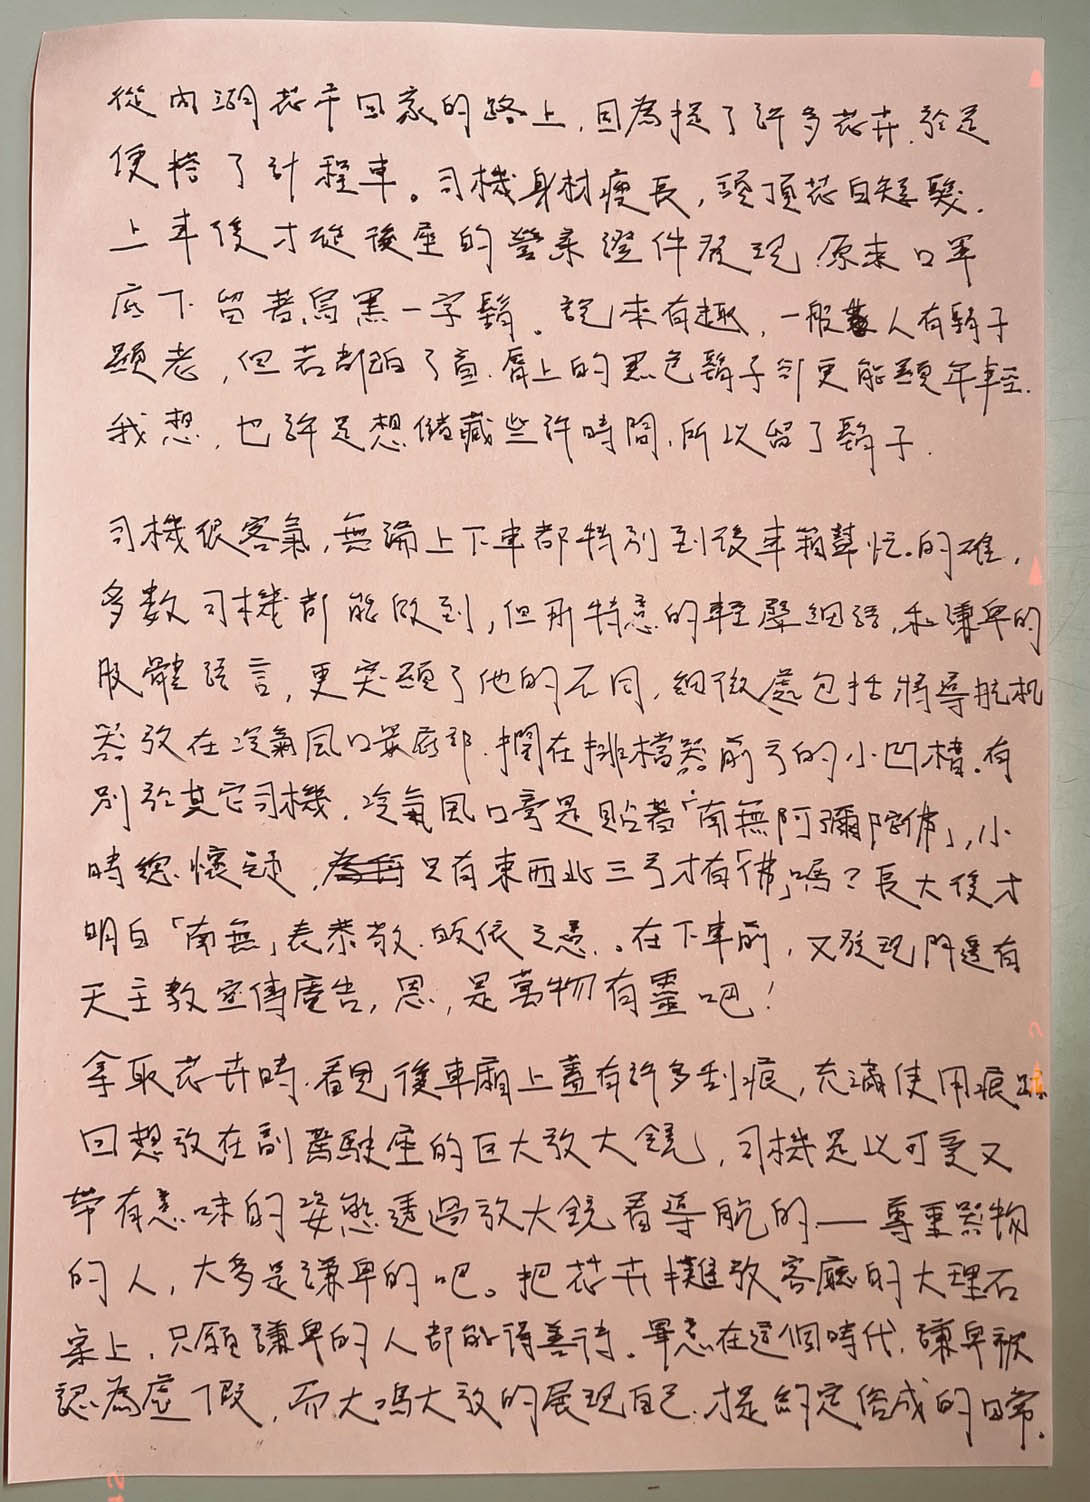 從內湖花市回家的路上,因為提了許多花卉,於是
便搭了計程車。司機身材瘦長,頭頂花白短髮.
上車後才從後座的營業證件發現,原來口罩
底下留著烏黑一字鬍。說來有趣,一般人有鬍子
顯老,但若都白了頭,唇上的黑色鬍子卻更能顯年輕.
我想,也許是想儲藏些許時間,所以留了鬍子.
司機很客氣,無論上下車都特別到後車箱幫忙。的確,
多數司機都能做到,但那特意的輕聲細語,和謙卑的
肢體語言,更突顯了他的不同,細微處包括將導航机
器放在冷氣風口最底部,擱在排檔器前方的小凹槽。有
別於其它司機,冷氣風口旁是貼著「南無阿彌陀佛」,小
時總懷疑,只有東西北三方才有「佛」嗎?長大後才
明白「南無」表恭敬.皈依之意.。在下車前,又發現門邊有
天主教宣傳廣告,恩,是萬物有靈吧!
拿取花卉時,看見後車廂上蓋有許多刮痕,充滿使用痕跡
回想放在副駕駛座的巨大放大鏡,司機是以可愛又
帶有意味的姿態透過放大鏡看導航的—尊重器物
的人,大多是謙卑的吧。把花卉攤放客廳的大理石
桌上,只願謙卑的人都能得善待。畢竟在這個時代,謙卑被
認為虛假,而大鳴大放的展現自己,才是約定俗成的日常.